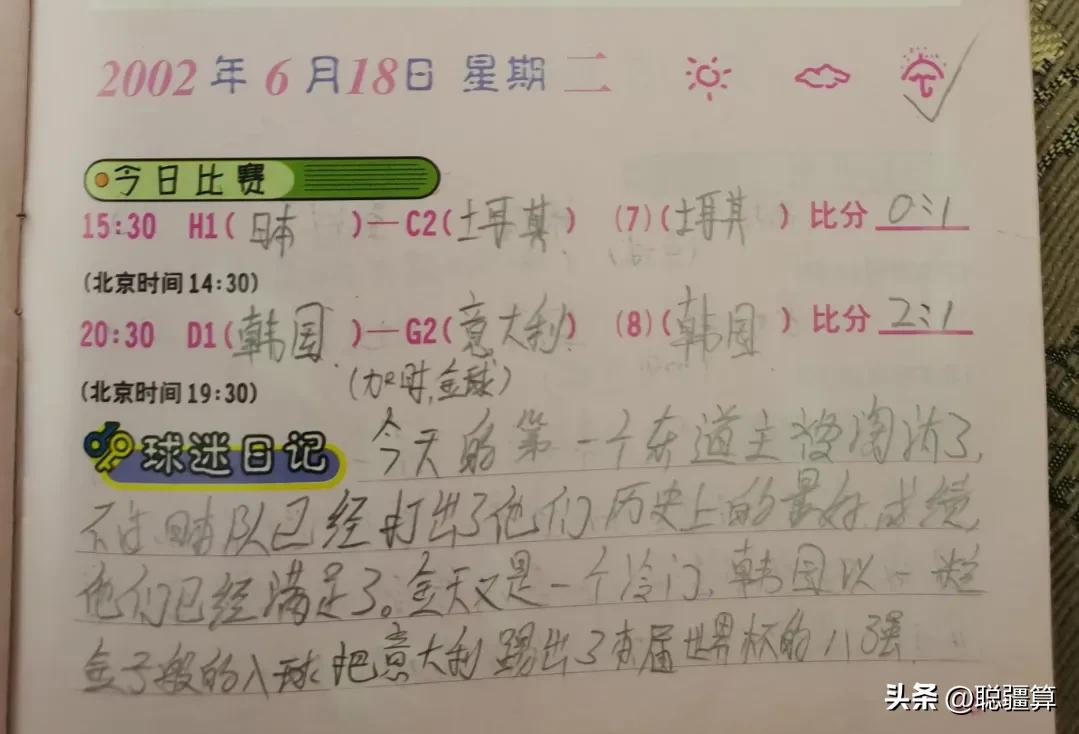 2002年6月18日 星期二
今日比赛
15:30 H1(日本)—C2(土耳其) (7)(土耳其) 比分 0:1
(北京时间14:30)
20:30 D1(韩国)—G2(意大利) (8)(韩国) 比分 2:1
(北京时间19:30) (加时,金球)
球迷日记 今天的第一个东道主被淘汰了,
不过日本队已经打出了他们历史上的最好成绩
他们已经满足了。今天又是一个冷门,韩国以一粒
金子般的入球把意大利踢出了本届世界杯的八强.
头条 @聪疆算